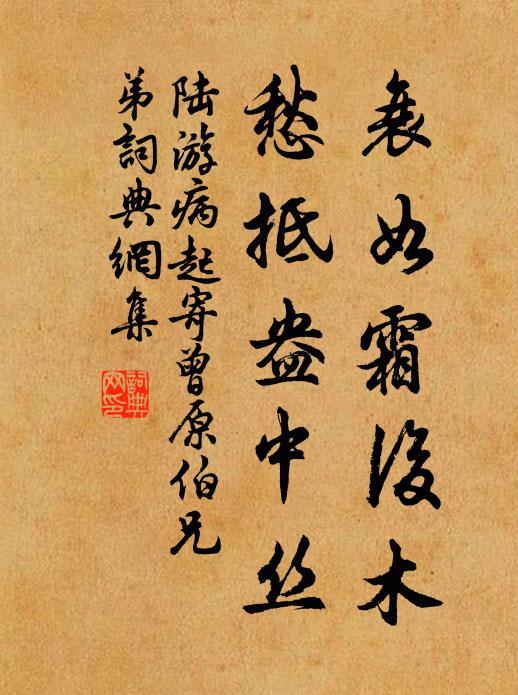 衰如霜後木
愁抵盎中丝
陆游病起寄曾原伯兄
弟詞典網集
詞典
网印